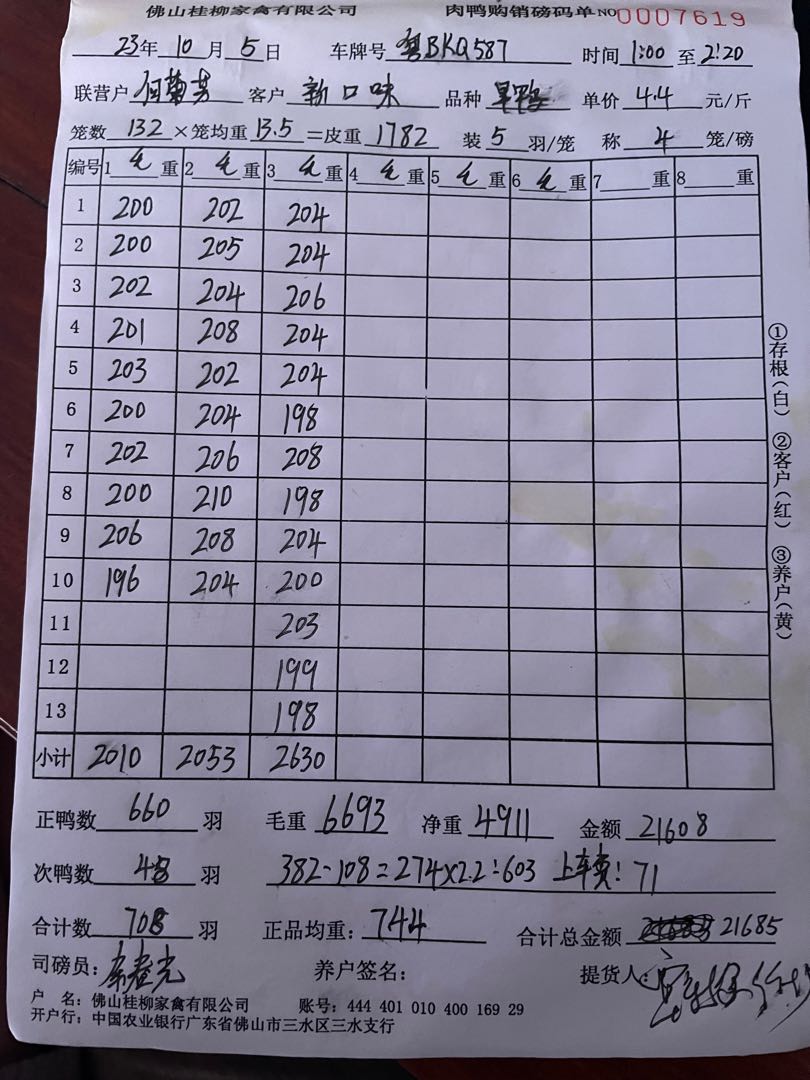 佛山桂柳家禽有限公司 肉鸭购销磅码单 NO 0007619
23年 10月 5日 车牌号 粤BKQ587 时间 1:00 至 2:20
联营户 何菊芳 客户 新口味 品种 单价 4.4 元/斤
笼数 132 ×笼均重 13.5 =皮重 1782 装 5 羽/笼 称 4 笼/磅
编号 1 毛 重 2 毛 重 3 毛 重 4 毛 重 5 毛 重 6 毛 重 7 重 8 重
1 200 202 204
2 200 205 204
3 202 204 206
4 201 208 204
5 203 202 204
6 200 204 198
7 202 206 208
8 200 210 198
9 206 208 204
10 196 204 200
11 203
12 199
13 198
小计 2010 2053 2630
正鸭数 660 羽 毛重 6693 净重 4911 金额 21608
次鸭数 48 羽 382-108=274×2.2=603 上车卖! 71
合计数 708 羽 正品均重: 744 合计总金额 21685
司磅员: 养户签名: 提货人:
户 名: 佛山桂柳家禽有限公司 账号: 444 401 010 400 169 29
开户行: 中国农业银行广东省佛山市三水区三水支行
①存根(白) ②客户(红) ③养户(黄)